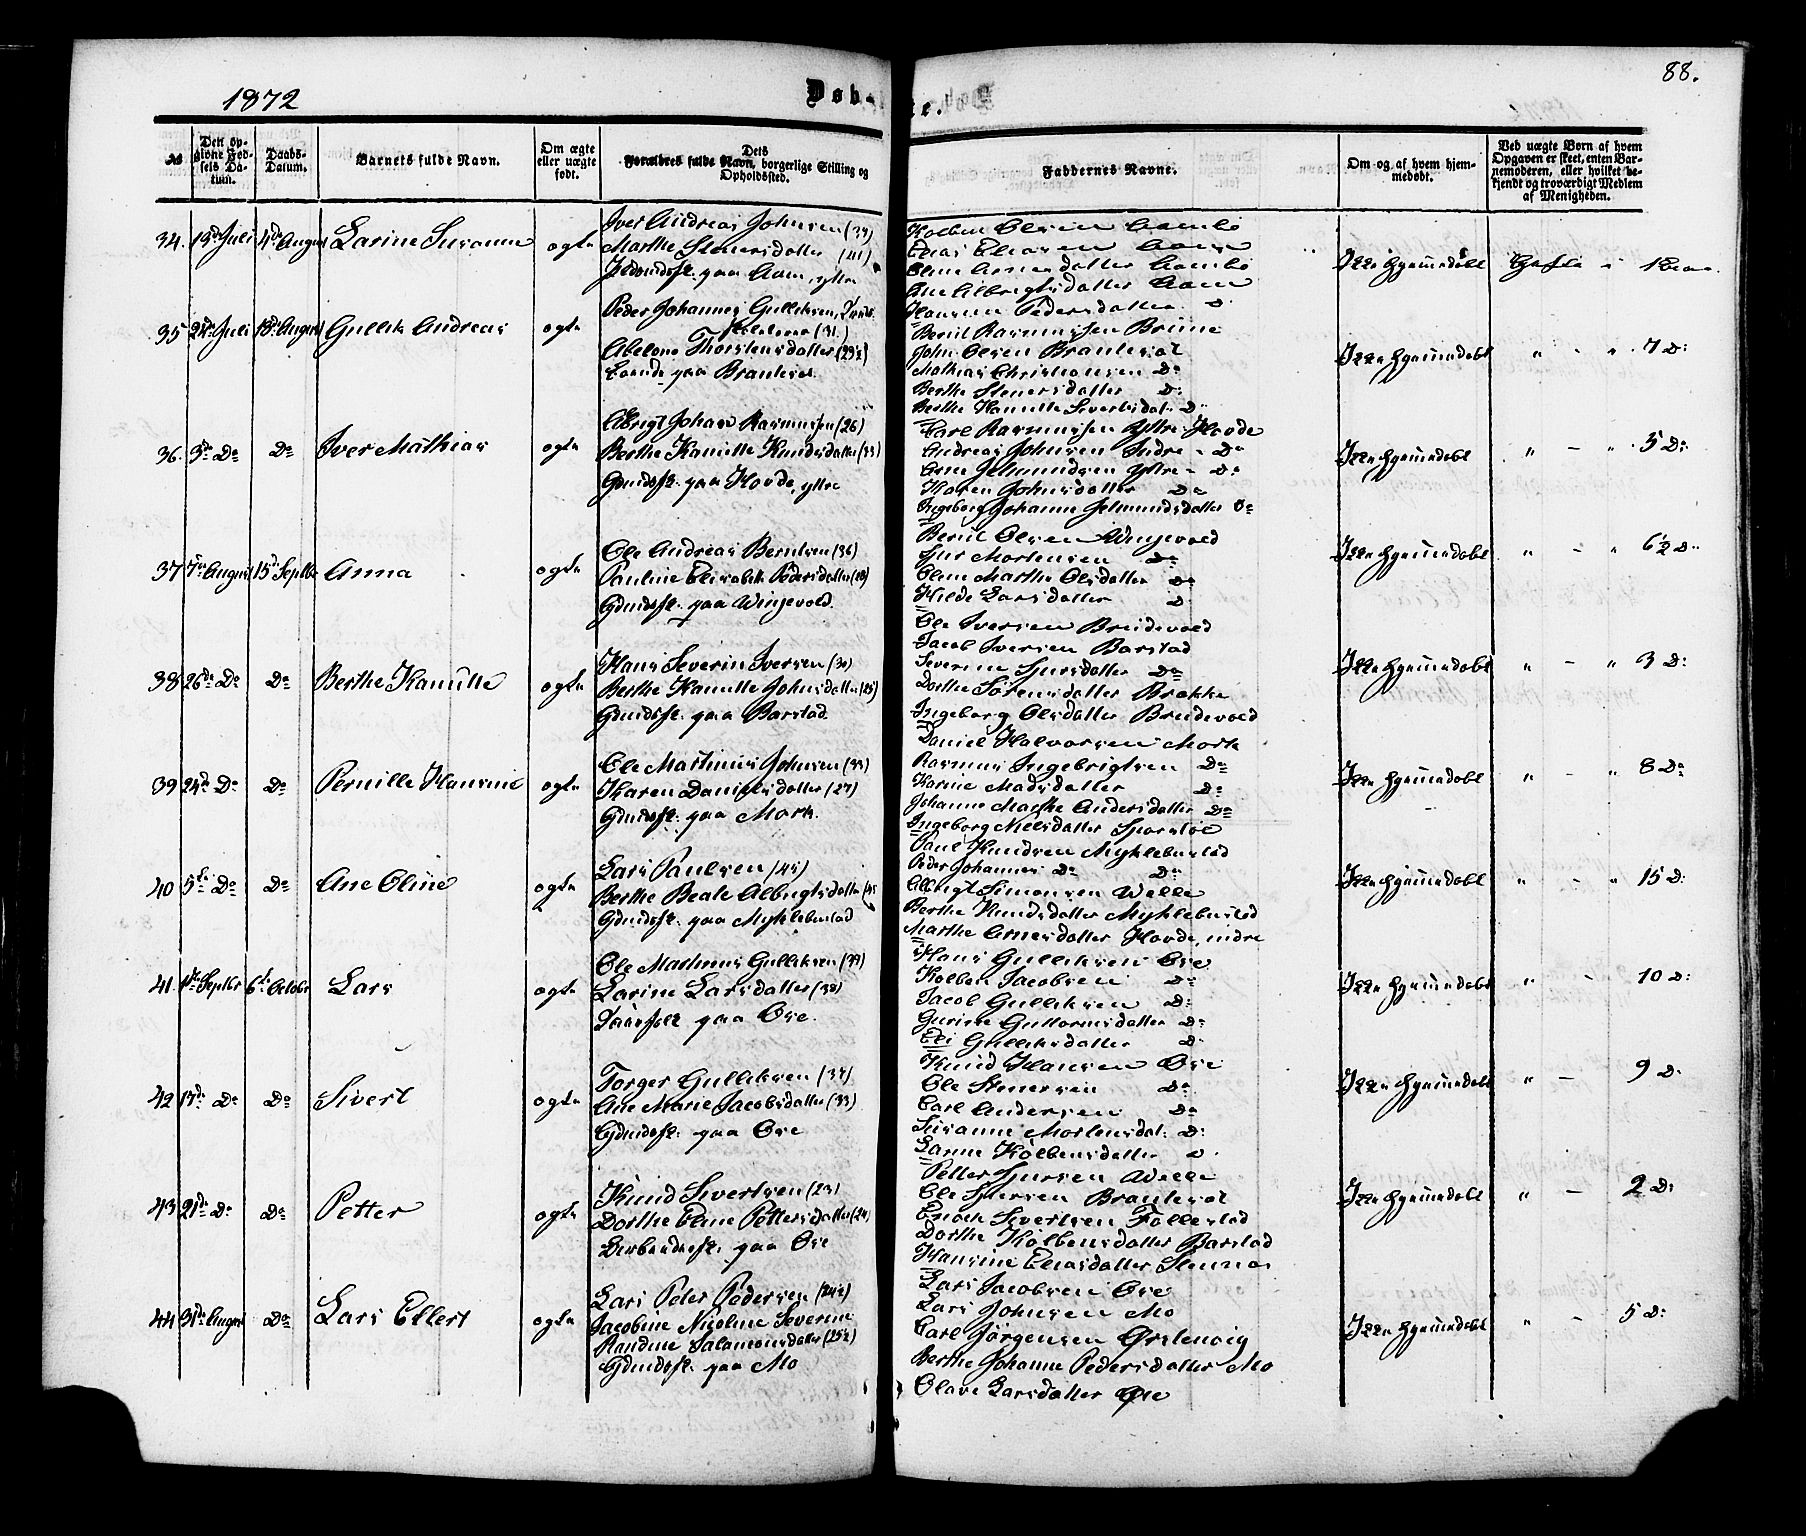 88.
1872
Døbte.
№
Den opgivne Fødsels Datum.
Daabs-Datum.
Barnets fulde Navn.
Om ægte eller uægte født.
Dets Forældres fulde Navn, borgerlige Stilling og Opholdssted.
Faddernes Navne.
Om og af hvem hjemmedøbt.
Ved uægte Børn af hvem Opgaven er skeet, enten Barnemoderen, eller hvilket bekjendt og troværdigt Medlem af Menigheden.
34. 13de Juli 4de August Larine Susanne ægte
Iver Andreas Johnsen (39)
Marthe Stenersdatter (41)
paa Aam, ytre
Kolben Olsen Aambø
Elias Eliasen Aam
Oline Arnesdatter Aambø
Ane Albrigtsdatter Aam
Hansine Pedersdatter D
Ikke hjemmedøbt
35 24de Juli 18de August Gullik Andreas ægte
Peder Johannes Gulliksen,
(31)
Abelone Thorstensdatter (29½)
Boende paa Brauteset
Bernt Rasmussen Brune
John Olsen Brauteset
Mathias Christiansen Do
Berthe Stenersdatter D:
Berthe Kamille Sivertsdat: D:
Ikke hjemmedøbt " - " 7 D:
36. 3de Do Do Iver Mathias ægte
Albrigt Johan Rasmussen (26)
Berthe Kamille Knudsdatter (33)
Gdmdsf. paa Hovde, ytre
Carl Rasmussen Ytre-Hovde
Andreas Johnsen Indre - Do
Arne Jetmundsen Ytre - Do
Karen Johnsdatter Do
Ingeborg Johanne Jetmundsdatter Do
Ikke hjemmedøbt " - " 5 D:
37 7de August 15de Septbr Anna ægte
Ole Andreas Berntsen (36)
Pauline Elisabeth Pedersdatter (28)
Gdmdsf. paa Wingevold.
Bernt Olsen Wingevold
Sjur Mortensen Do
Oline Marthe Olsdatter Do
Hilde Larsdatter D:
Ole Iversen Brudevold
Ikke hjemmedøbt " - " 6½ D:
38 26de Do Do Berthe Kamille ægte
Hans Severin Iversen (30)
Berthe Kamille Johnsdatter (25)
Gdmdsf. paa Barstad
Jacob Iversen Barstad
Severine Sjursdatter Do
Dorthe Sørensdatter Brekke
Ingeborg Olsdatter Brudevold
Ikke hjemmedøbt " - " 3 D:
39 24de Do Do Pernille Hansine ægte
Ole Martinus Johnsen (33)
Karen Danielsdatter (27)
Gdmdsf. paa Mork.
Daniel Halvorsen Mork
Rasmus Ingebrigtsen Do
Karine Madsdatter Do
Johanne Marthe Andersdatter Do
Ingeborg Nilsdatter
Ikke hjemmedøbt " - " 8 Do
40 5te Do Do Ane Oline ægte
Lars Paulsen (45)
Berthe Beate Albrigtsdatter
Gdmdsf. paa Myklebustad
Paul Knudsen Myklebustad
Peder Johannes Do Do
Albrigt Simonsen Welle
Berthe Knudsdatter Myklebustad
Marthe Arnesdatter Hovde, indre
Ikke hjemmedøbt " - " 15 D:
41. 1ste Septbr 6te Octobr Lars ægte
Ole Martinus Gulliksen (39)
Larine Larsdatter (38)
paa Øse.
Hans Gulliksen Øse
Kolben Jacobsen Do
Jacob Gulliksen D:
Gurine Guttormsdatter D:
Eli Gulliksdatter D:
Ikke hjemmedøbt " - 10 D:
42 17de Do Do Sivert ægte
Torger Gulliksen (37)
Ane Marie Jacobsdatter (33)
Gdmdsf. paa Øse
Knud Hansen Øse
Ole Stenersen Do
Carl Andersen Do
Susanne Mortensdat: D:
Lanne Kolbensdatter D
Ikke hjemmedøbt " - 9 D:
43 21de Do Do Petter ægte
Knud Sivertsen (23)
Dorthe Eline Pettersdatter (24)
paa Øse
Petter Sjursen Welle
Ole Sjursen Brauteset
Enock Sivertsen Follestad
Dorthe Kolbensdatter Barstad
Hansine Eliasdatter Stennes
Ikke hjemmedøbt " - 2 D:
44 31de August Do Lars Ellert ægte
Lars Peter Pedersen (24½)
Jacobine Nicoline Severine
Randine Salamonsdatter (25½)
Gdmdsf. paa Mo
Lars Jacobsen Øse
Lars Johnsen Mo
Carl Jørgensen Ørstenvig
Berthe Johanne Pedersdatter Mo
Olave Larsdatter Øse
Ikke hjemmedøbt " - 5 D: